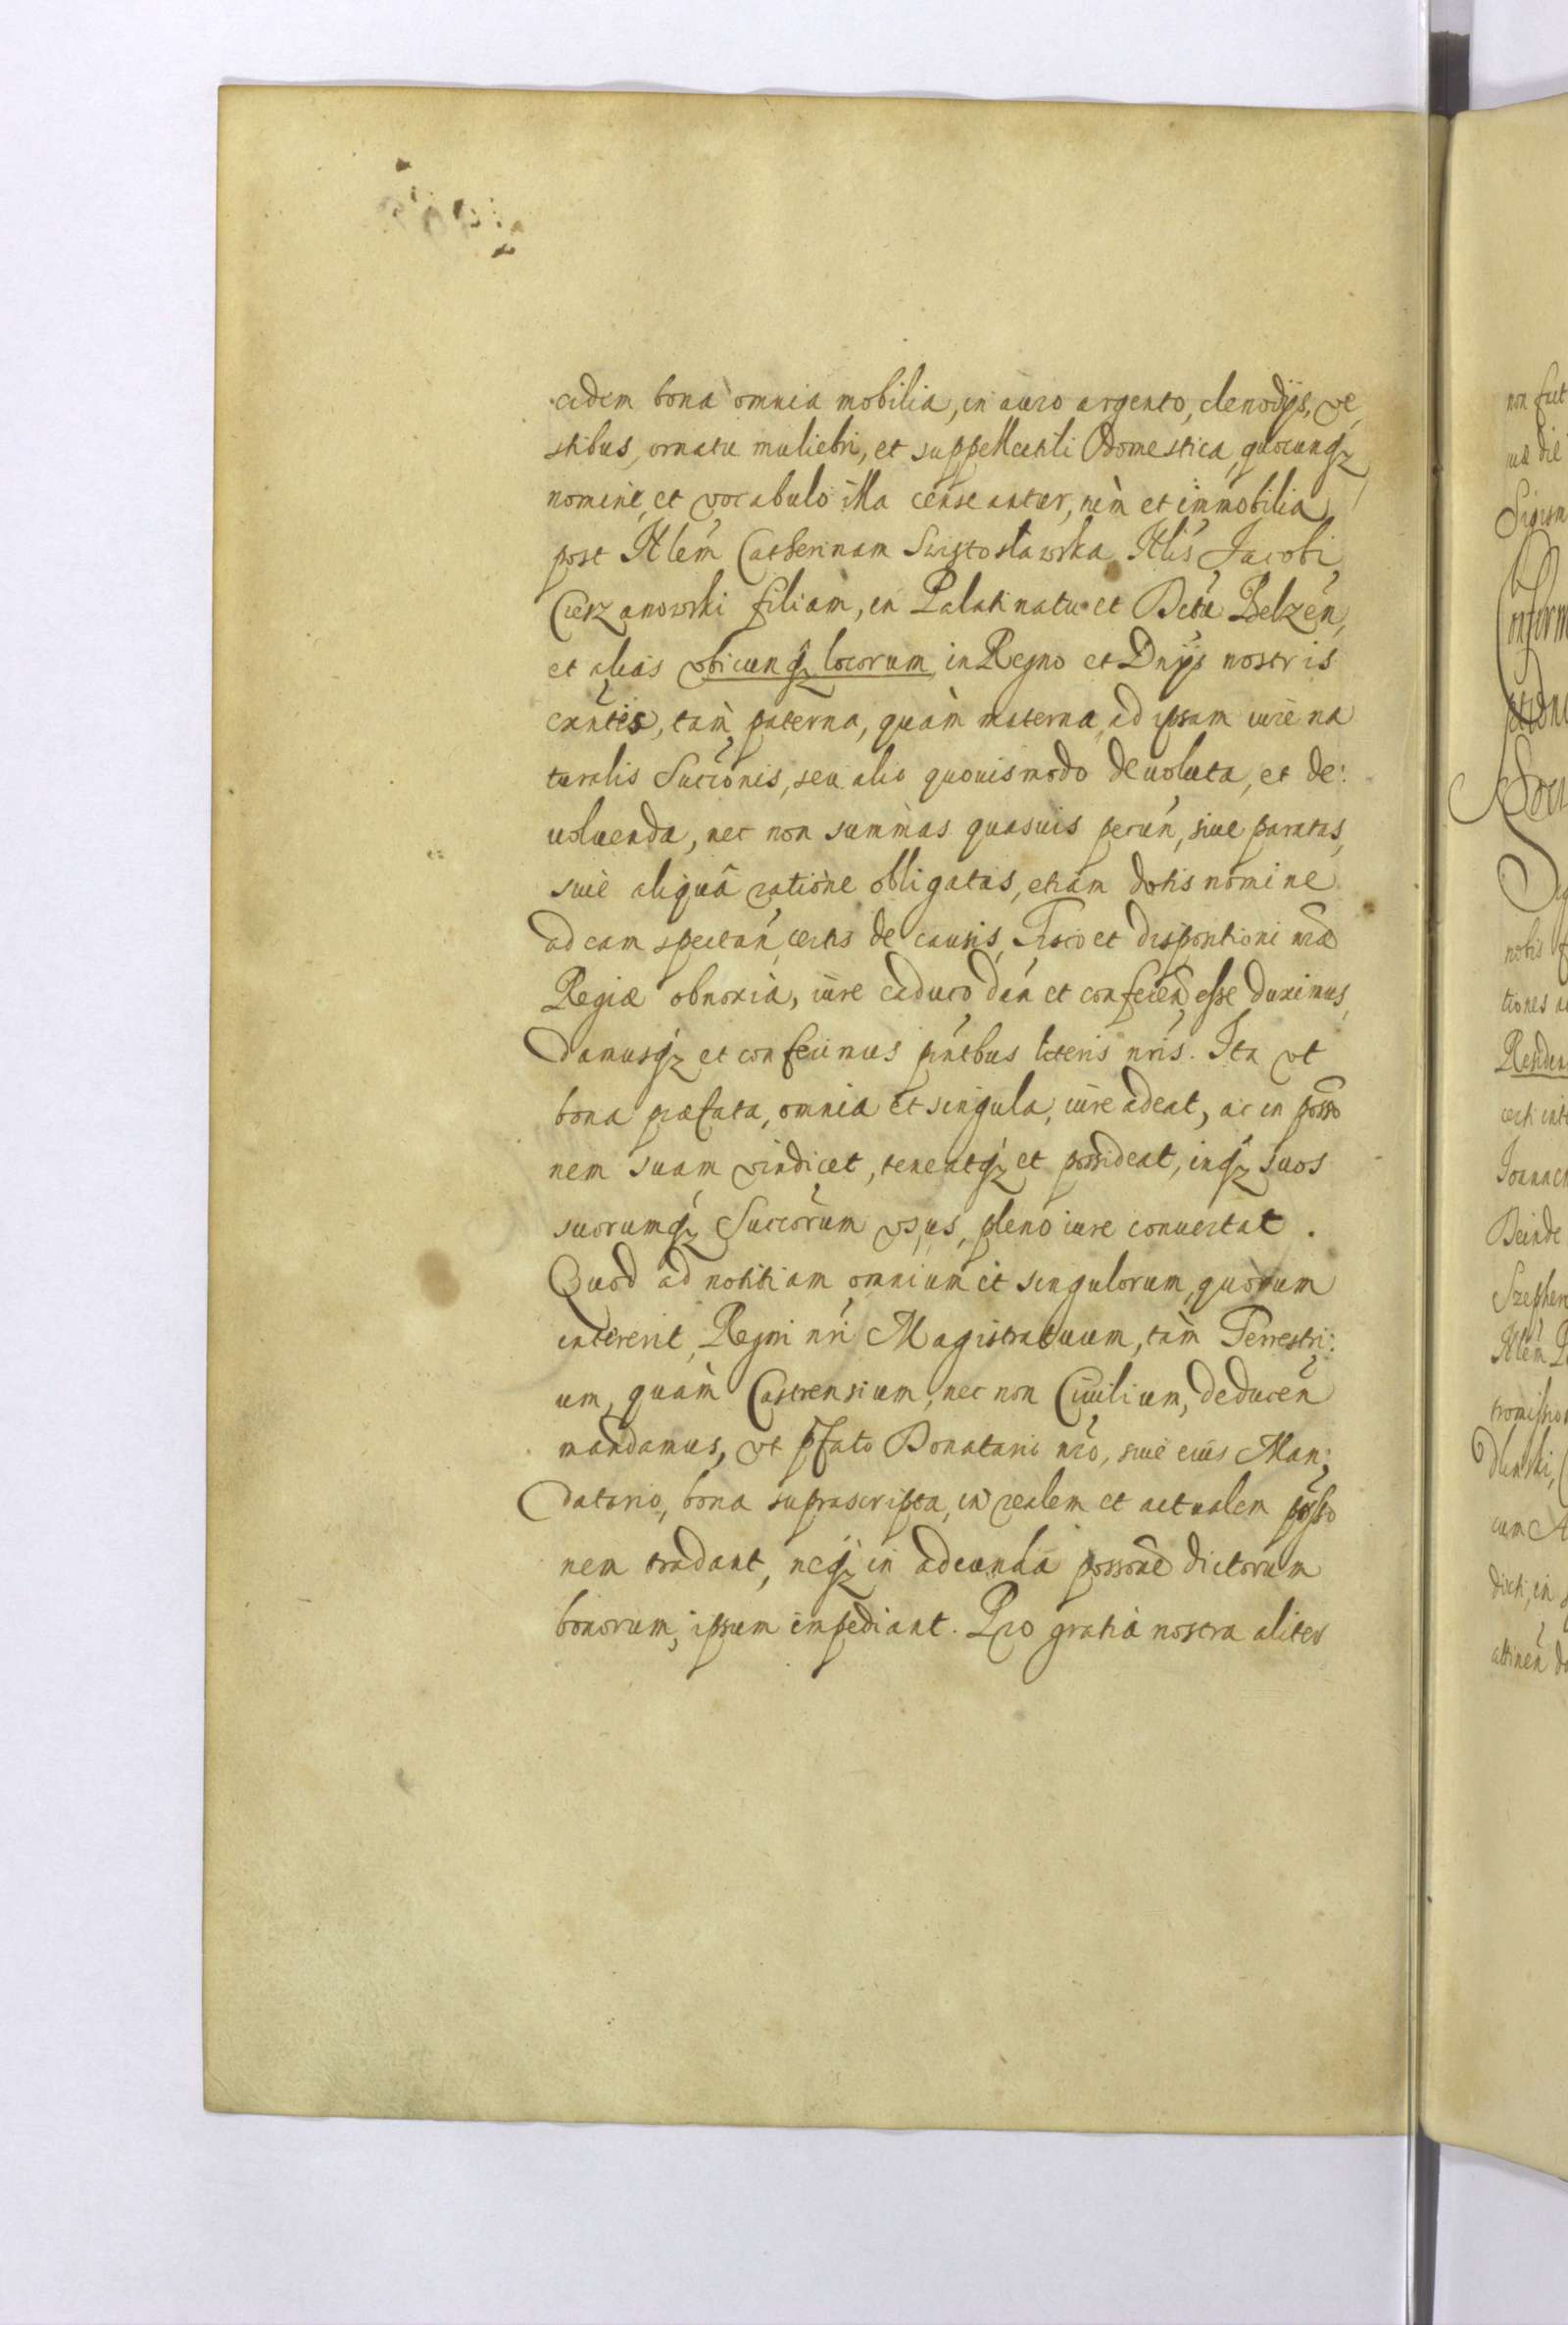 eidem bona omnia mobilia, in auro argento, clenodijs, ve
stibus, ornatu muliebri, et suppellectili Domestica, quocunq
nomine, et vocabulo illa censeantur, nèm et immobilia
post Hlem Catherinam Swiętosławska Hlis Jacobi
Cieszanowski filiam, in Palatinatu et Dctu Belzen,
et alias vbicunq locorum in Regno et Dnijs nostris
exntes, tàm paterna, quàm materna, ad ipsam iure na
turalis Succionis, seu alio quouismodo deuoluta, et de:
uoluenda, nec non summas quasuis pecun, siue paratas,
siue aliquâ ratione obligatas, etiam dotis nomine
ad eam spectan, certis de causis, Fisco et dispositioni nrae
Regiæ obnoxia, iure caduco dan et conferen esse duximus,
damusq et conferimus pntbus literis nris. Ita vt
bona præfata, omnia et singula, iure adeat, ac in posso
nem suam vindicet, teneatq et possideat, inq suos
suorumq Succorum vsus, pleno iure conuertat.
Quod ad notitiam omnium et singulorum, quorum
intererit, Regni nri Magistratuum, tàm Terrestri:
um, quàm Castrensium, nec non Ciuilium, deducen
mandamus, vt pfato Donatario nro, siue eius Man:
datario, bona suprascripta, in realem et actualem posso
nem tradant, neq in adeunda possone dictorum
bonorum, ipsum impediant. Pro gratia nostra aliter
non
Sigism
nobis
tiones
Residen
certi
Joannem
Deinde
Hlem
cum
dicti, in
attinen